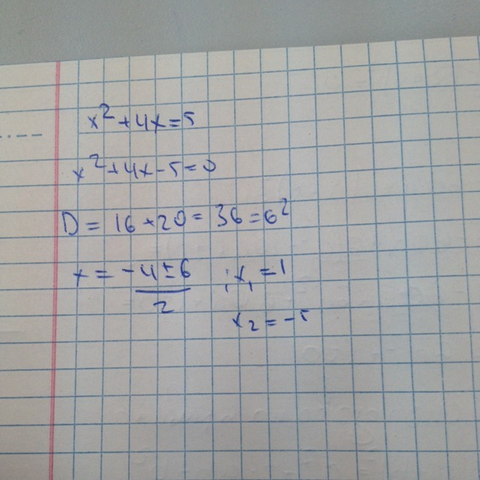 x² + 4x = 5
x² + 4x - 5 = 0
D = 16 + 20 = 36 = 6²
x = (-4 ± 6)/2 ; x₁ = 1
x₂ = -5